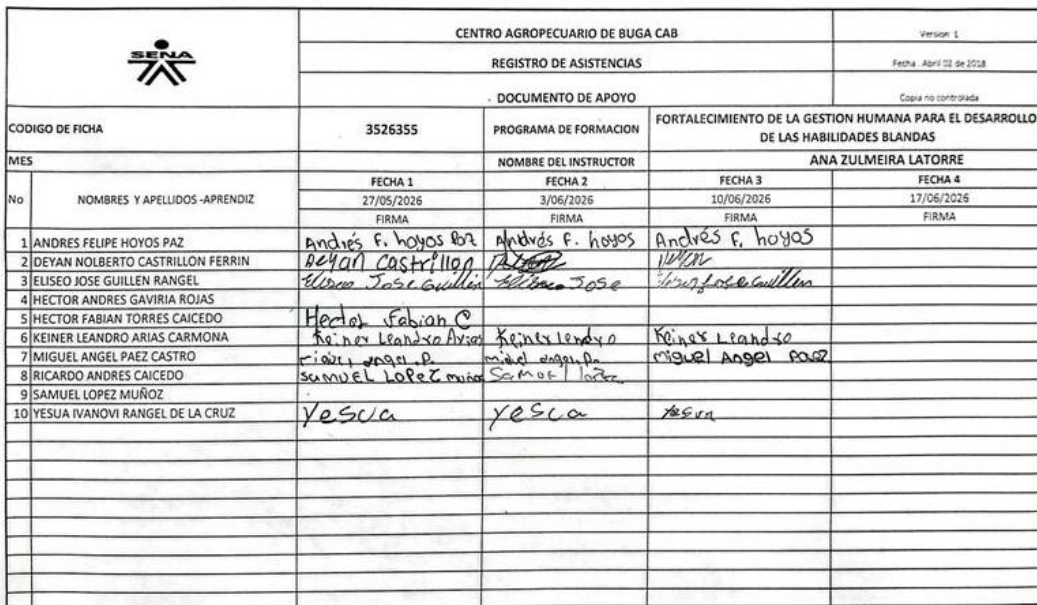 SENA
CENTRO AGROPECUARIO DE BUGA CAB
Version 1
REGISTRO DE ASISTENCIAS
Fecha : Abril 02 de 2018
DOCUMENTO DE APOYO
Copia no controlada
CODIGO DE FICHA 3526355 PROGRAMA DE FORMACION FORTALECIMIENTO DE LA GESTION HUMANA PARA EL DESARROLLO
DE LAS HABILIDADES BLANDAS
MES NOMBRE DEL INSTRUCTOR ANA ZULMEIRA LATORRE
No NOMBRES Y APELLIDOS -APRENDIZ
FECHA 1 FECHA 2 FECHA 3 FECHA 4
27/05/2026 3/06/2026 10/06/2026 17/06/2026
FIRMA FIRMA FIRMA FIRMA
1 ANDRES FELIPE HOYOS PAZ Andrés F. hoyos Paz Andrés F. hoyos Andrés F. hoyos
2 DEYAN NOLBERTO CASTRILLON FERRIN Deyan Castrillon
3 ELISEO JOSE GUILLEN RANGEL Eliseo Jose Guillen Eliseo Jose Guillen
4 HECTOR ANDRES GAVIRIA ROJAS
5 HECTOR FABIAN TORRES CAICEDO Hector Fabian C
6 KEINER LEANDRO ARIAS CARMONA Keiner Leandro Arias Keiner lendro Keiner Leandro
7 MIGUEL ANGEL PAEZ CASTRO angel P. miguel angel P. Miguel Angel Paez
8 RICARDO ANDRES CAICEDO SAMUEL LOPEZ muñoz Samuel
9 SAMUEL LOPEZ MUÑOZ
10 YESUA IVANOVI RANGEL DE LA CRUZ Yesua Yesua Yesua